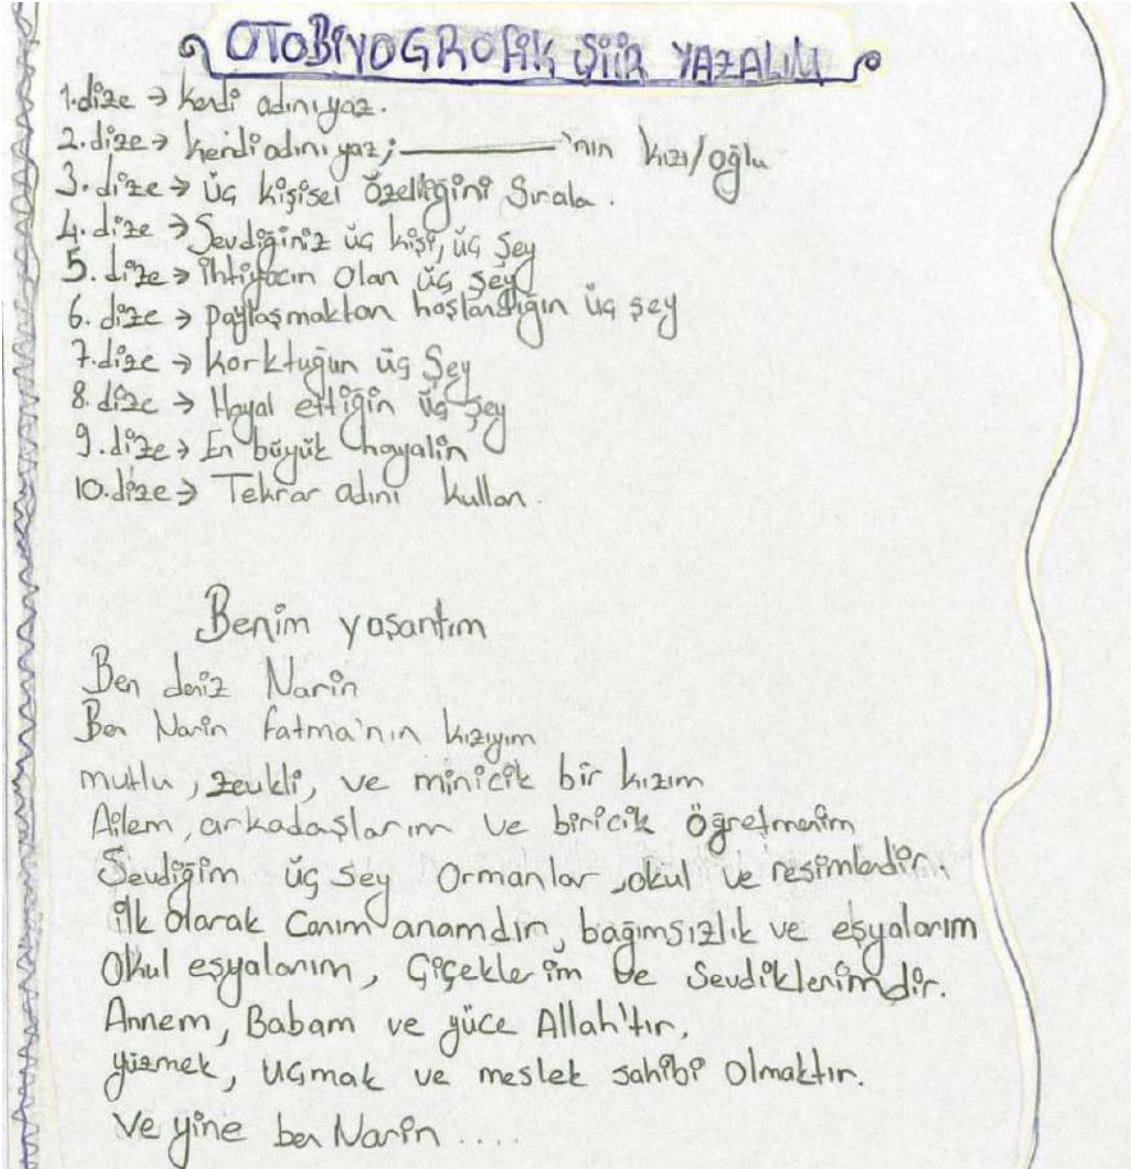 OTOBİYOGROFİK ŞİİR YAZALIM
1.dize → kendi adını yaz.
2.dize → kendi adını yaz; ———'nın kızı/oğlu
3.dize → üç kişisel özelliğini Sırala.
4.dize → Sevdiğiniz üç kişi, üç şey
5.dize → ihtiyacın olan üç şey
6.dize → paylaşmaktan hoşlandığın üç şey
7.dize → korktuğun üç Şey
8.dize → Hayal ettiğin üç şey
9.dize → En büyük hayalin
10.dize → Tekrar adını kullan.
Benim yaşantım
Ben deniz Narin
Ben Narin fatma'nın kızıyım
mutlu, zevkli, ve minicik bir kızım
Ailem, arkadaşlarım ve biricik öğretmenim
Sevdiğim üç şey Ormanlar, okul ve resimlerdir.
ilk olarak Canım anamdır, bağımsızlık ve eşyalarım
Okul eşyalarım, Çiçeklerim ve Sevdiklerimdir.
Annem, Babam ve yüce Allah'tır.
yüzmek, Uçmak ve meslek sahibi Olmaktır.
Ve yine ben Narin ....